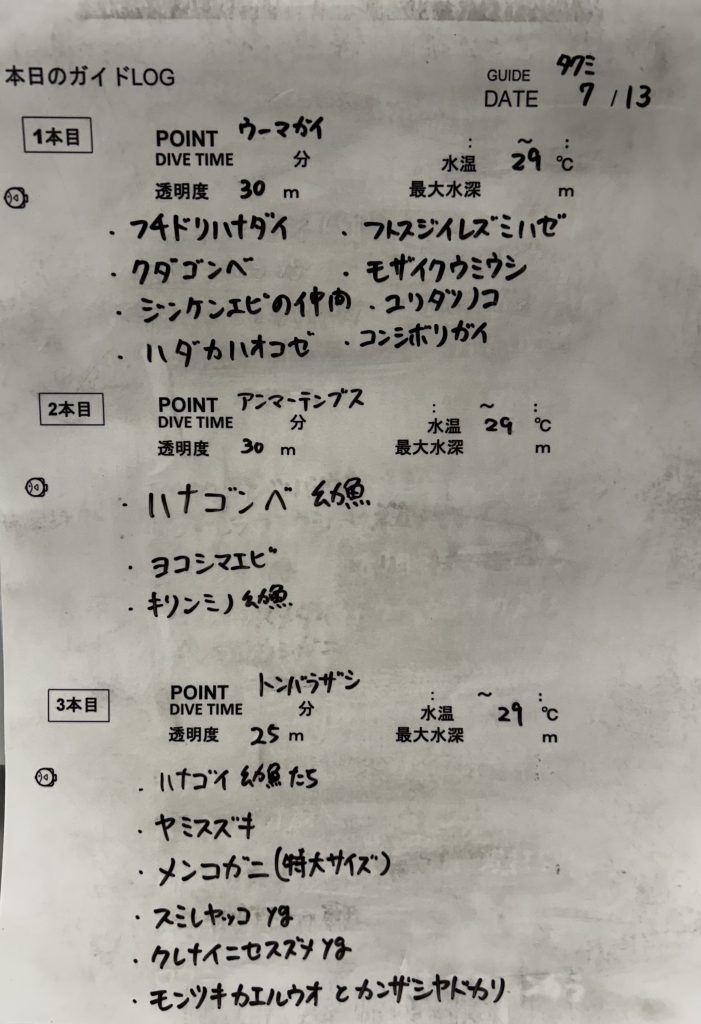 本日のガイドLOG
GUIDE タクミ
DATE 7/13
1本目
POINT ウーマガイ
: ～ :
DIVE TIME 分
水温 29 ℃
透明度 30 m
最大水深 m
・フチドリハナダイ
・フトスジイレズミハゼ
・クダゴンベ
・モザイクウミウシ
・ジンケンエビの仲間
・ユリタツノコ
・ハダカハオコゼ
・コンシボリガイ
2本目
POINT アンマーテンブス
: ～ :
DIVE TIME 分
水温 29 ℃
透明度 30 m
最大水深 m
・ハナゴンベ 幼魚
・ヨコシマエビ
・キリンミノ 幼魚
3本目
POINT トンバラザシ
: ～ :
DIVE TIME 分
水温 29 ℃
透明度 25 m
最大水深 m
・ハナゴイ 幼魚たち
・ヤミスズキ
・メンコガニ(特大サイズ)
・スミレヤッコ yg
・クレナイニセスズメ yg
・モンツキカエルウオ とカンザシヤドカリ